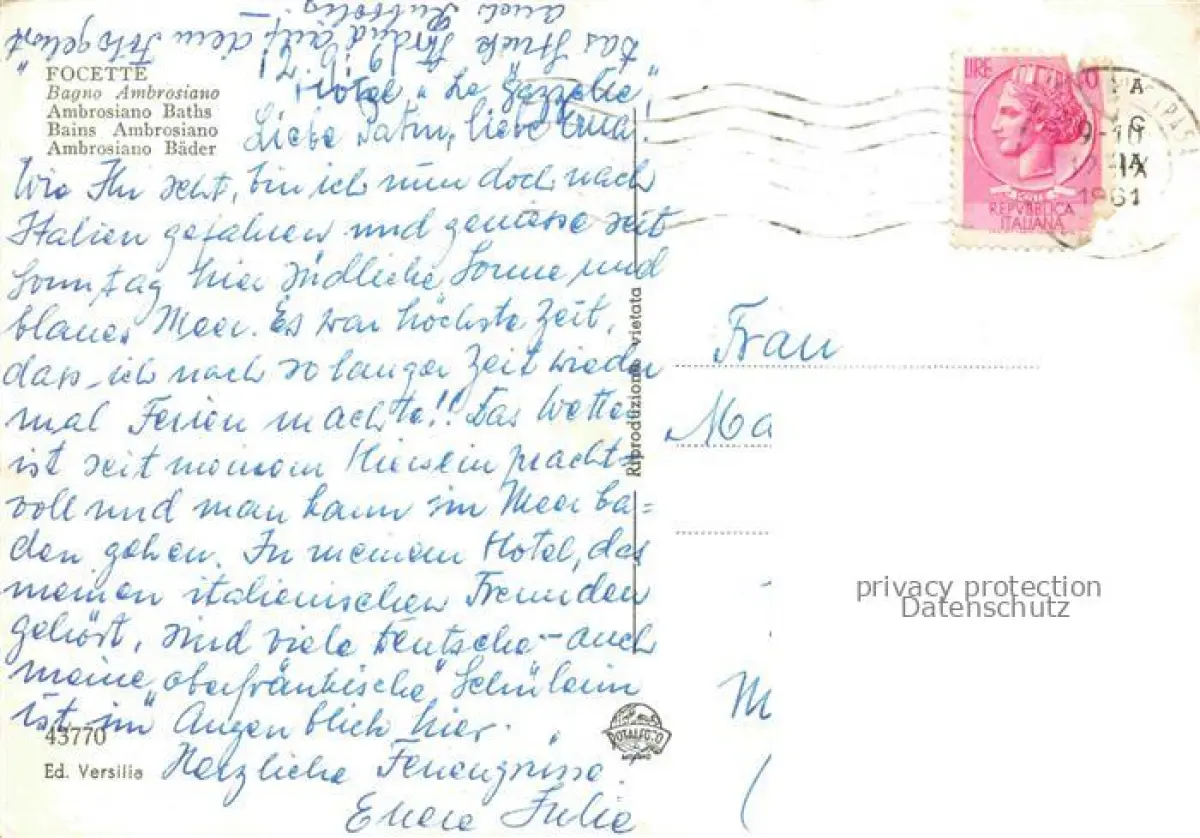 FOCETTE
Bagno Ambrosiano
Ambrosiano Baths
Bains Ambrosiano
Ambrosiano Bäder
das Stück Strand auf dem Foto gehört
auch
Hotel „La Gazzella"
Liebe liebe Erna!
Wie Ihr seht, bin ich nun doch nach
Italien gefahren und geniesse seit
Sonntag hier südliche Sonne und
blaues Meer. Es war höchste Zeit,
dass ich nach so langer Zeit wieder
mal Ferien machte!! Das Wetter
ist seit meinem Hiersein pracht-
voll und man kann im Meer ba=
den gehen. In meinem Hotel, das
meinen italienischen Freunden
gehört, sind viele Deutsche – auch
meine „oberfränkische" Schülerin
ist im Augenblick hier.
Herzliche Feriengrüsse
Euere Julie
43770
Ed. Versilia
Riproduzione vietata
ROTALFOTO
MILANO
LIRE
REPVBBLICA
ITALIANA
9-10
IX
1961
Frau
Ma
M
privacy protection
Datenschutz